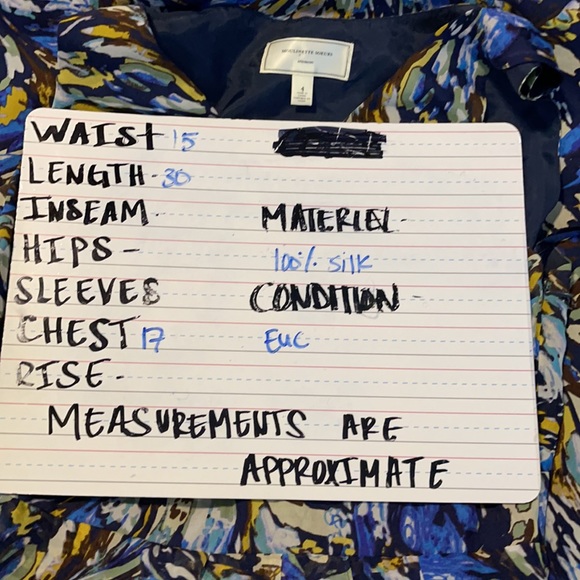 MOULINETTE SOEURS
4
WAIST 15
LENGTH - 30
INSEAM -
MATERIEL -
HIPS -
100% Silk
SLEEVES
CONDITION -
CHEST 17
EUC
RISE -
MEASUREMENTS ARE
APPROXIMATE